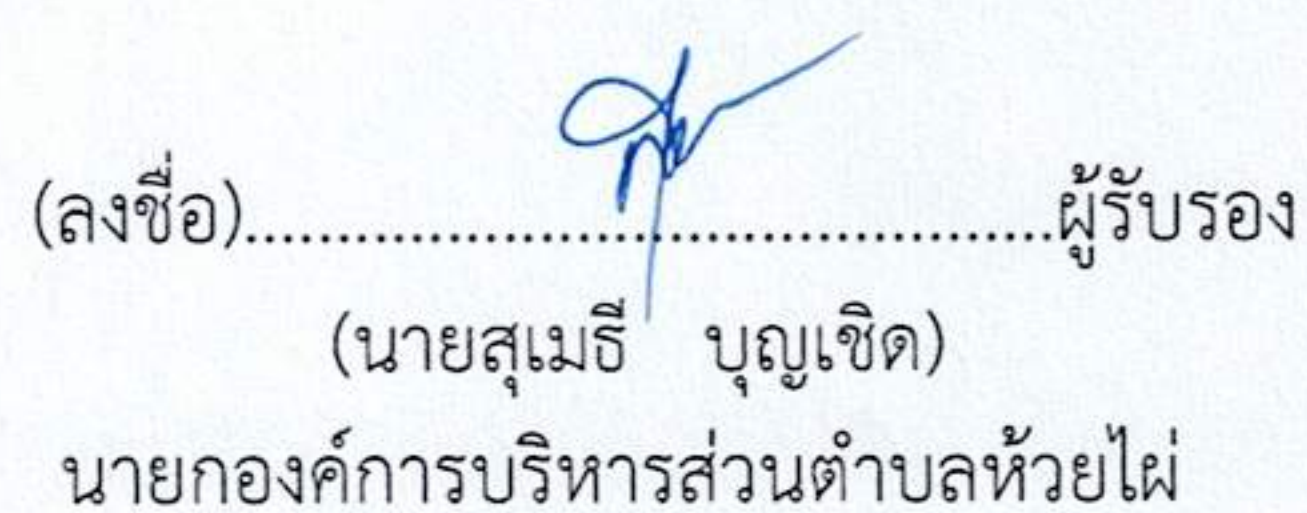 (ลงชื่อ)..............................................ผู้รับรอง
(นายสุเมธี บุญเชิด)
นายกองค์การบริหารส่วนตำบลห้วยไผ่